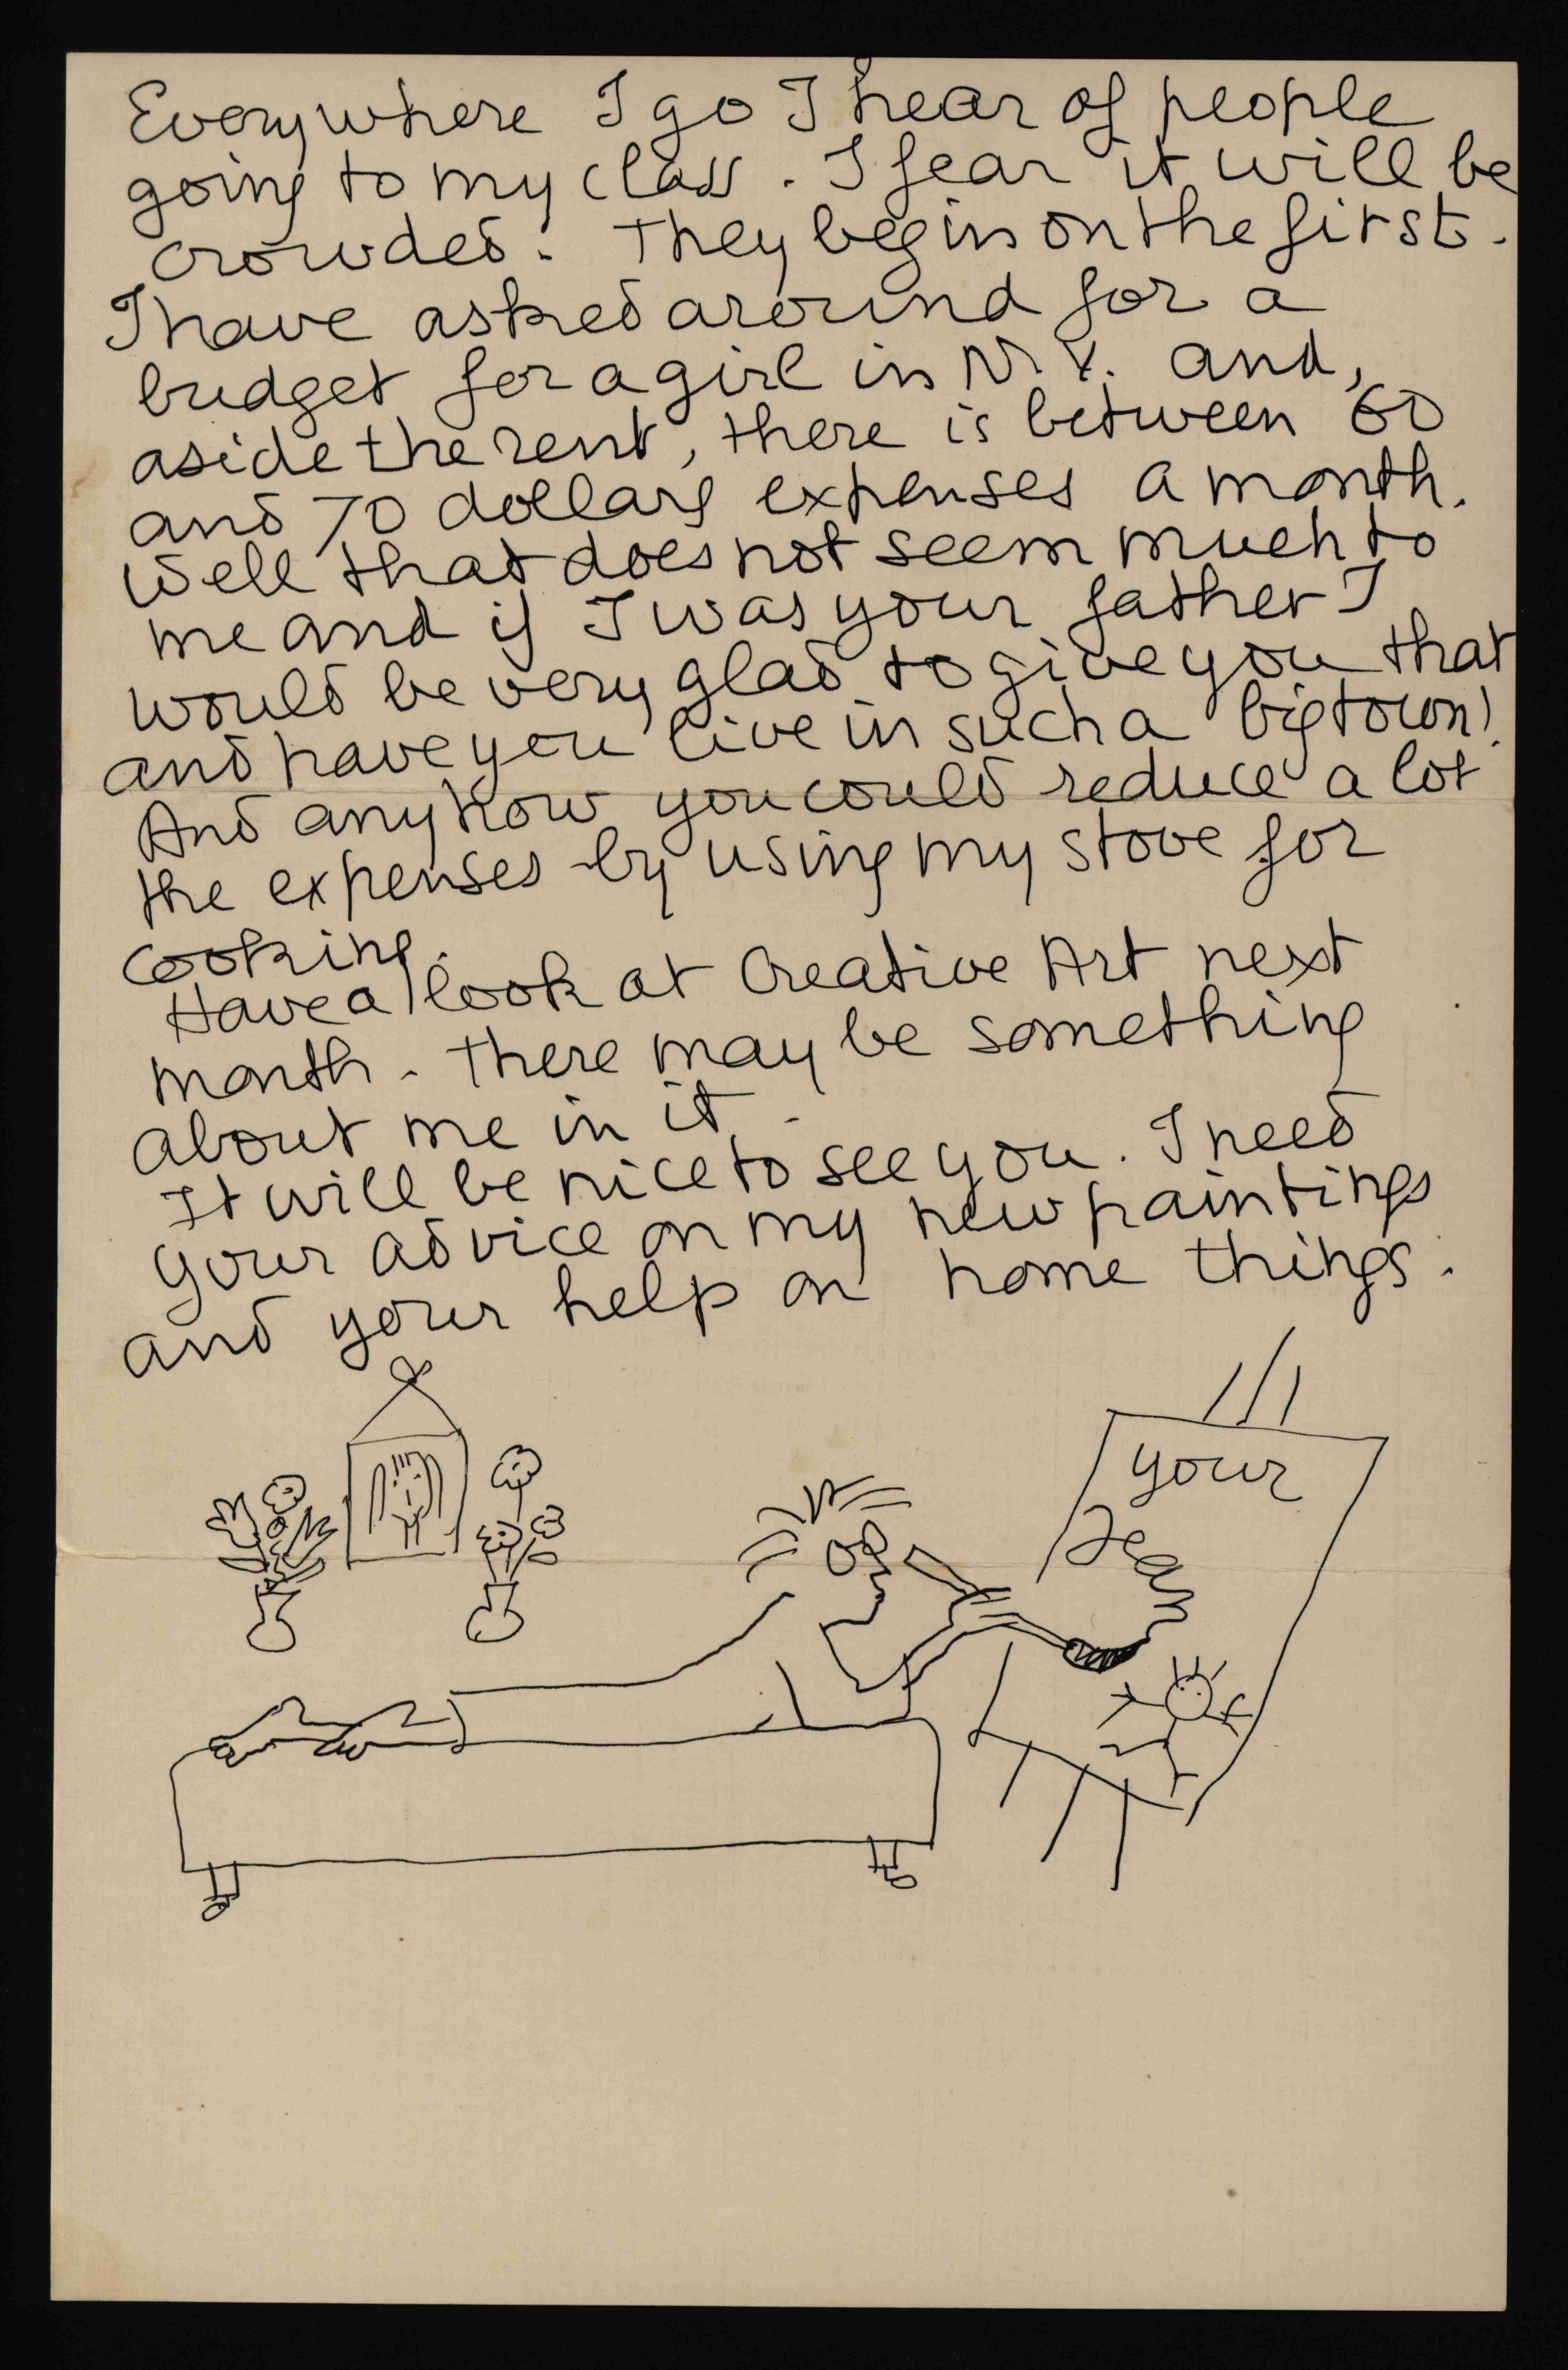 Everywhere I go I hear of people
going to my class. I fear it will be
crowded. They begin on the first.
I have asked around for a
budget for a girl in N.Y. and,
aside the rent, there is between 60
and 70 dollars expenses a month.
Well that does not seem much to
me and if I was your father I
would be very glad to give you that
and have you live in such a big town!
And anyhow you could reduce a lot
the expenses by using my stove for
cooking.
Have a look at Creative Art next
month. There may be something
about me in it.
It will be nice to see you. I need
your advice on my new paintings
and your help on home things.
your
Jean